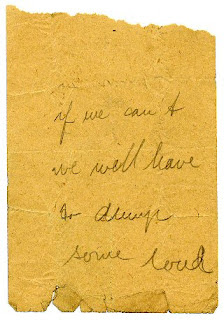 if we can't
we will have
to dump
some load